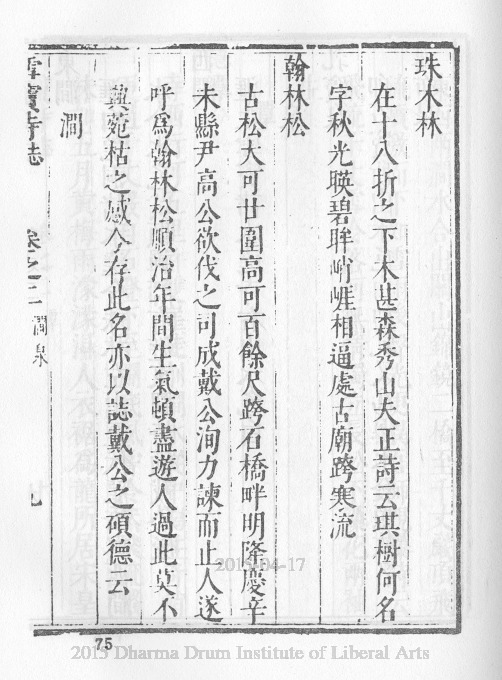 珠木林
在十八折之下木甚森秀山夫正詩云琪樹何名
字秋光暎碧眸峭崕相逼處古廟跨寒流
翰林松
古松大可廿圍高可百餘尺跨石橋畔明隆慶辛
未縣尹高公欲伐之司成戴公洵力諫而止人遂
呼爲翰林松順治年間生氣頓盡遊人過此莫不
興菀枯之感今存此名亦以誌戴公之碩德云
澗
雪竇寺誌 卷之二 澗泉 九
2015-04-17
75
2015 Dharma Drum Institute of Liberal Arts